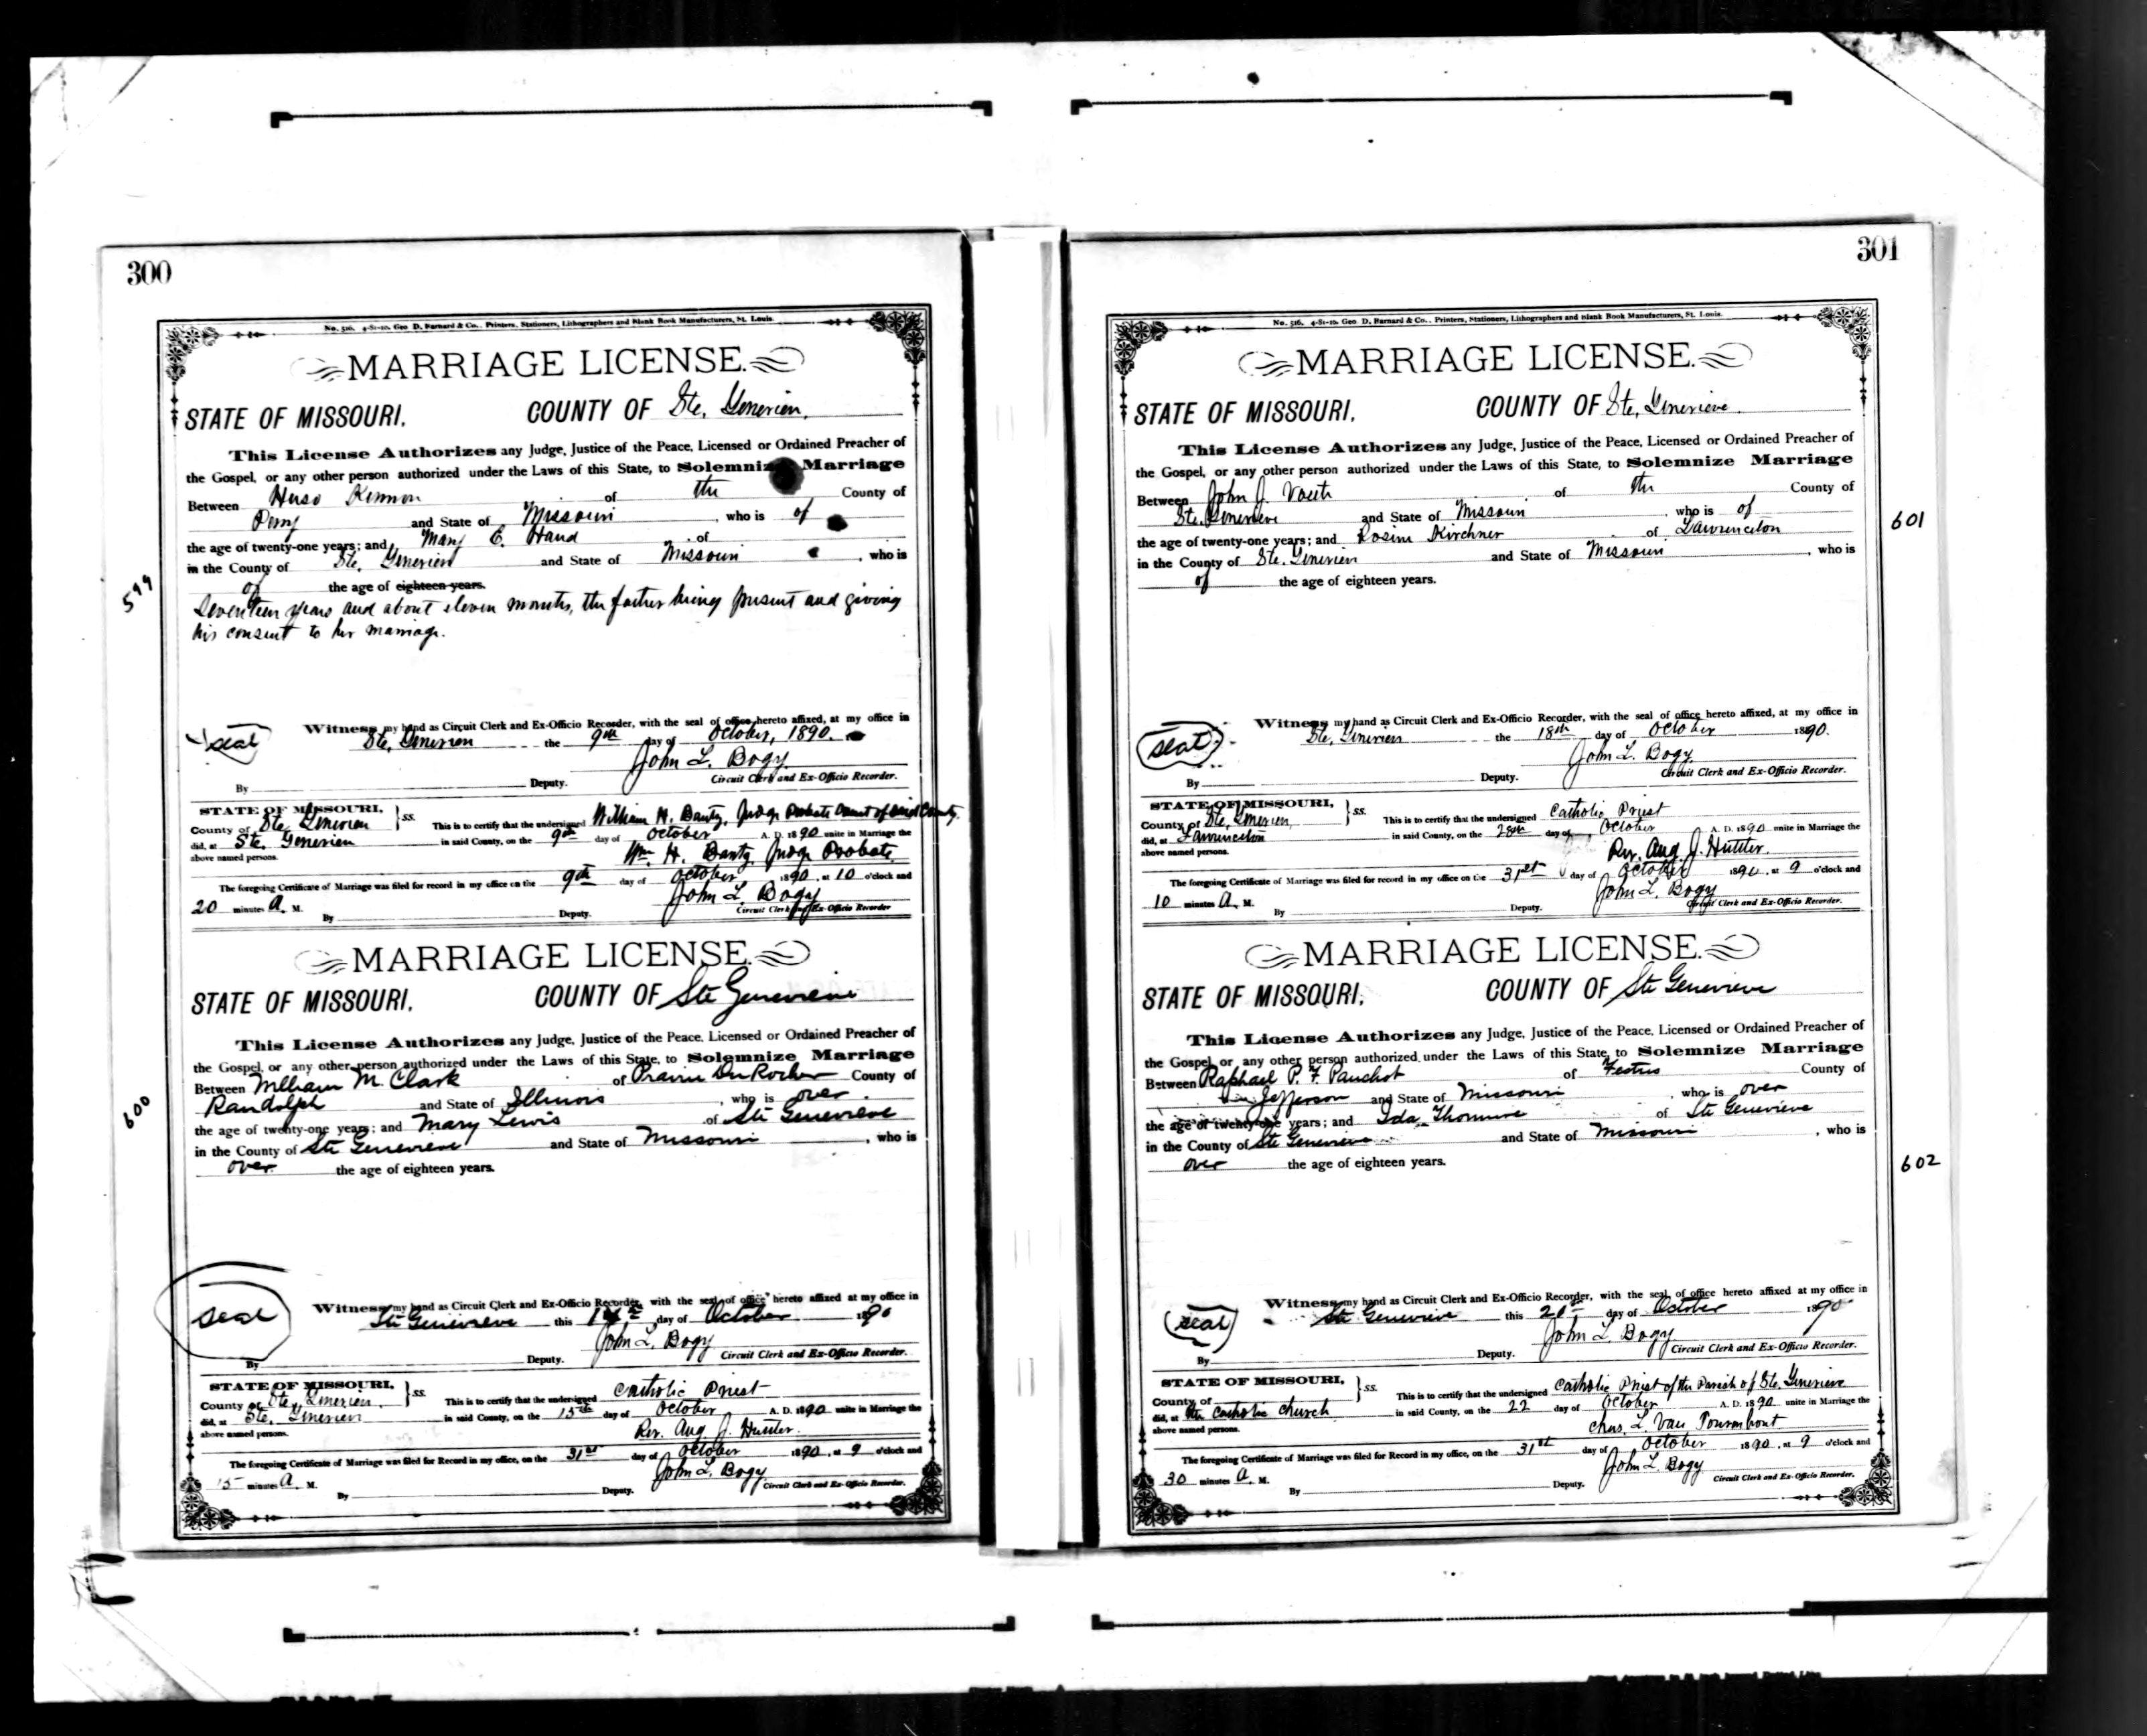 300
No. 516. 4-81-10. Geo D. Barnard & Co., Printers, Stationers, Lithographers and Blank Book Manufacturers, St. Louis.
MARRIAGE LICENSE.
STATE OF MISSOURI. COUNTY OF Ste. Genevieve.
This License Authorizes any Judge, Justice of the Peace, Licensed or Ordained Preacher of
the Gospel, or any other person authorized under the Laws of this State, to Solemnize Marriage
Between of the County of
Perry and State of Missouri, who is of
the age of twenty-one years; and Mary E. Hand of
in the County of Ste. Genevieve and State of Missouri, who is
of the age of eighteen years.
599
Seventeen years and about eleven months, the father being present and giving
his consent to her marriage.
Witness my hand as Circuit Clerk and Ex-Officio Recorder, with the seal of office hereto affixed, at my office in
seal Ste. Genevieve the 9th day of October, 1890.
John L. Bogy
By Deputy. Circuit Clerk and Ex-Officio Recorder.
STATE OF MISSOURI,
County of Ste. Genevieve ss. This is to certify that the undersigned William H. Bantz, Judge Probate Court of said County
did, at Ste. Genevieve in said County, on the 9th day of October A. D. 1890 unite in Marriage the
above named persons. Wm. H. Bantz Judge Probate
The foregoing Certificate of Marriage was filed for record in my office on the 9th day of October 1890, at 10 o'clock and
20 minutes A. M. John L. Bogy
By Deputy. Circuit Clerk and Ex-Officio Recorder
MARRIAGE LICENSE.
STATE OF MISSOURI. COUNTY OF Ste Genevieve
This License Authorizes any Judge, Justice of the Peace, Licensed or Ordained Preacher of
the Gospel, or any other person authorized under the Laws of this State, to Solemnize Marriage
Between William M. Clark of Prairie Du Rocher County of
Randolph and State of Illinois, who is over
600
the age of twenty-one years; and Mary Lewis of Ste Genevieve
in the County of Ste Genevieve and State of Missouri, who is
over the age of eighteen years.
Witness my hand as Circuit Clerk and Ex-Officio Recorder, with the seal of office hereto affixed at my office in
seal Ste Genevieve this day of October 1890
John L. Bogy
By Deputy. Circuit Clerk and Ex-Officio Recorder.
STATE OF MISSOURI,
County of Ste. Genevieve, ss. This is to certify that the undersigned Catholic Priest
did, at Ste. Genevieve in said County, on the 15th day of October A. D. 1890 unite in Marriage the
above named persons. Rev. Aug. J. Huttler.
The foregoing Certificate of Marriage was filed for Record in my office, on the 31st day of October 1890, at 9 o'clock and
15 minutes A. M. John L. Bogy
By Deputy. Circuit Clerk and Ex-Officio Recorder.
301
No. 516. 4-81-10. Geo D. Barnard & Co., Printers, Stationers, Lithographers and Blank Book Manufacturers, St. Louis.
MARRIAGE LICENSE.
STATE OF MISSOURI. COUNTY OF Ste. Genevieve.
This License Authorizes any Judge, Justice of the Peace, Licensed or Ordained Preacher of
the Gospel, or any other person authorized under the Laws of this State, to Solemnize Marriage
Between John J. of the County of
Ste. Genevieve and State of Missouri, who is of
601
the age of twenty-one years; and Rosine Kirchner of Lawrenceton
in the County of Ste. Genevieve and State of Missouri, who is
of the age of eighteen years.
Witness my hand as Circuit Clerk and Ex-Officio Recorder, with the seal of office hereto affixed, at my office in
seal Ste. Genevieve the 18th day of October 1890.
John L. Bogy
By Deputy. Circuit Clerk and Ex-Officio Recorder.
STATE OF MISSOURI,
County of Ste. Genevieve, ss. This is to certify that the undersigned Catholic Priest
did, at Lawrenceton in said County, on the 28th day of October A. D. 1890 unite in Marriage the
above named persons. Rev. Aug. J. Huttler.
The foregoing Certificate of Marriage was filed for record in my office on the 31st day of October 1890, at 9 o'clock and
10 minutes A. M. John L. Bogy
By Deputy. Circuit Clerk and Ex-Officio Recorder.
MARRIAGE LICENSE.
STATE OF MISSOURI. COUNTY OF Ste Genevieve
This License Authorizes any Judge, Justice of the Peace, Licensed or Ordained Preacher of
the Gospel, or any other person authorized under the Laws of this State, to Solemnize Marriage
Between Raphael P. F. Panchot of Festus County of
in Jefferson and State of Missouri, who is over
the age of twenty-one years; and Ida Thomure of Ste Genevieve
in the County of Ste Genevieve and State of Missouri, who is
over the age of eighteen years.
602
Witness my hand as Circuit Clerk and Ex-Officio Recorder, with the seal of office hereto affixed at my office in
seal Ste Genevieve this day of October 1890
John L. Bogy
By Deputy. Circuit Clerk and Ex-Officio Recorder.
STATE OF MISSOURI,
County of ss. This is to certify that the undersigned Catholic Priest of the Parish of Ste. Genevieve
did, at the Catholic Church in said County, on the 22 day of October A. D. 1890 unite in Marriage the
above named persons. Chas. L. Van Tourenhout
The foregoing Certificate of Marriage was filed for Record in my office, on the 31st day of October 1890, at 9 o'clock and
30 minutes A. M. John L. Bogy
By Deputy. Circuit Clerk and Ex-Officio Recorder.